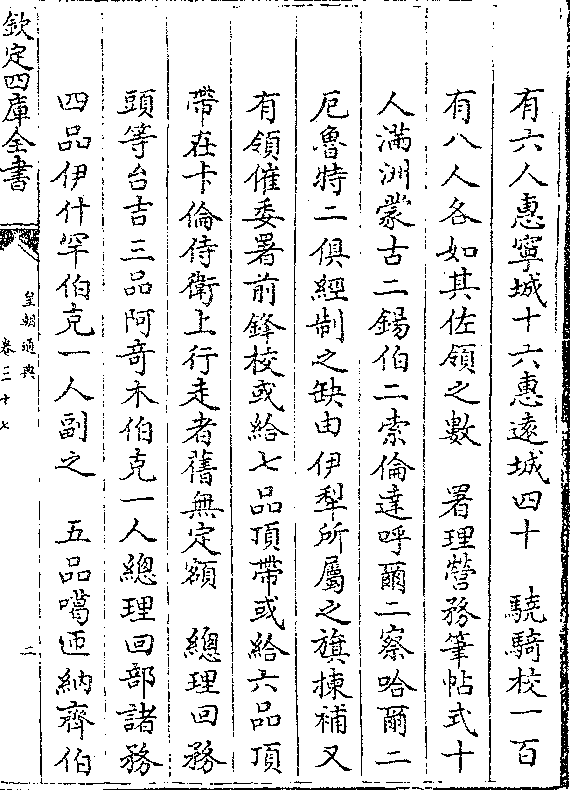 有六人惠寧城十六惠遠城四十　驍騎校一百
有八人各如其佐領之數　署理營務筆帖式十
人滿洲蒙古二錫伯二索倫達呼爾二察哈爾二
厄魯特二俱經制之缺由伊犂所屬之旗揀補又
有領催委署前鋒校或給七品頂帶或給六品頂
帶在卡倫侍衛上行走者舊無定額　總理回務
頭等台吉三品阿竒木伯克一人總理回部諸務
四品伊什罕伯克一人副之　五品噶匝納齊伯
欽定四庫全書
皇朝通典
卷三十七
二